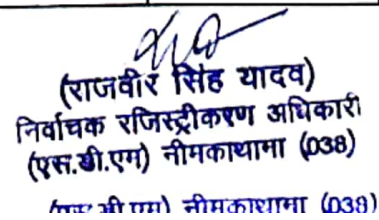 (राजवीर सिंह यादव)
निर्वाचक रजिस्ट्रीकरण अधिकारी
(एस.डी.एम) नीमकाथाना (038)
(एस.डी.एम) नीमकाथाना (038)